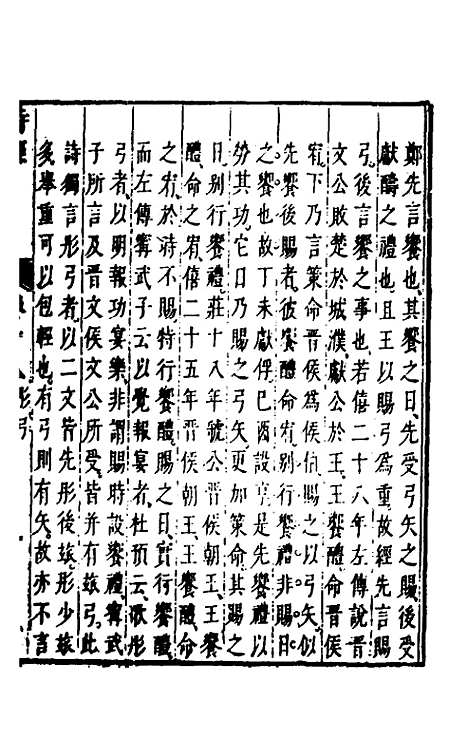 鄭先言饗也其饗之日先受弓矢之賜後受
獻醻之禮也且王以賜弓為重故經先言賜
弓後言饗之事也若僖二十八年左傳說晉
文公敗楚於城濮獻公於王王饗醴命晉侯
宥下乃言策命晉侯為侯伯賜之以弓矢似
先饗後賜者彼饗醴命宥別行饗禮非賜日
之饗也故丁未獻俘己酉設享是先饗禮以
勞其功它日乃賜之弓矢更加策命其賜之
日別行饗禮莊十八年號公晉侯朝王王饗
醴命之宥僖二十五年晉侯朝王王饗醴命
之宥於時不賜特行饗醴賜之日實行饗醴
而左傳甯武子云以覺報宴者杜預云歌彤
弓者以明報功宴樂非謂賜時設饗禮甯武
子所言及晉文侯文公所受皆并有玈弓此
詩獨言彤弓者以二文皆先彤後玈彤少玈
多舉重可以包輕也有弓則有矢故亦不言
詩經
彤弓